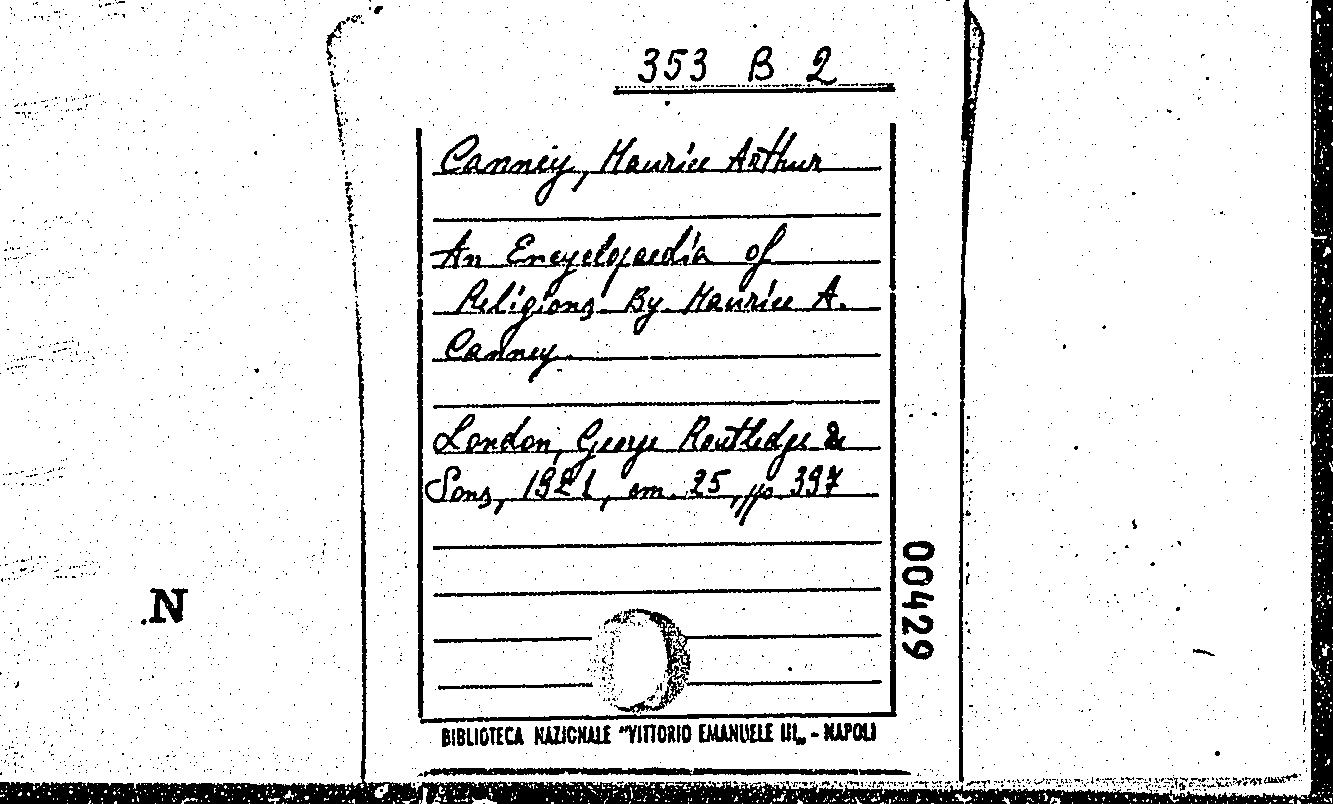 353 B 2
Canney, Maurice Arthur
An Encyclopaedia of
Religions. By Maurice A.
Canney.
London, George Routledge &
Sons, 1921, cm. 25, pp. 397
00429
N
BIBLIOTECA NAZIONALE "VITTORIO EMANUELE III„ - NAPOLI